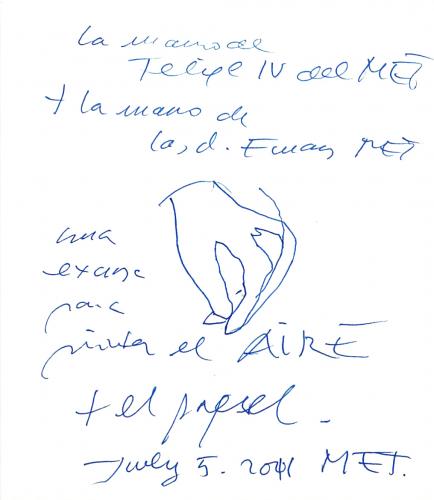 la mano de
Felipe IV del MET
+ la mano de
la, d. MET
una
excusa
para
pintar el AIRE
+ el papel.
July 5. MET.